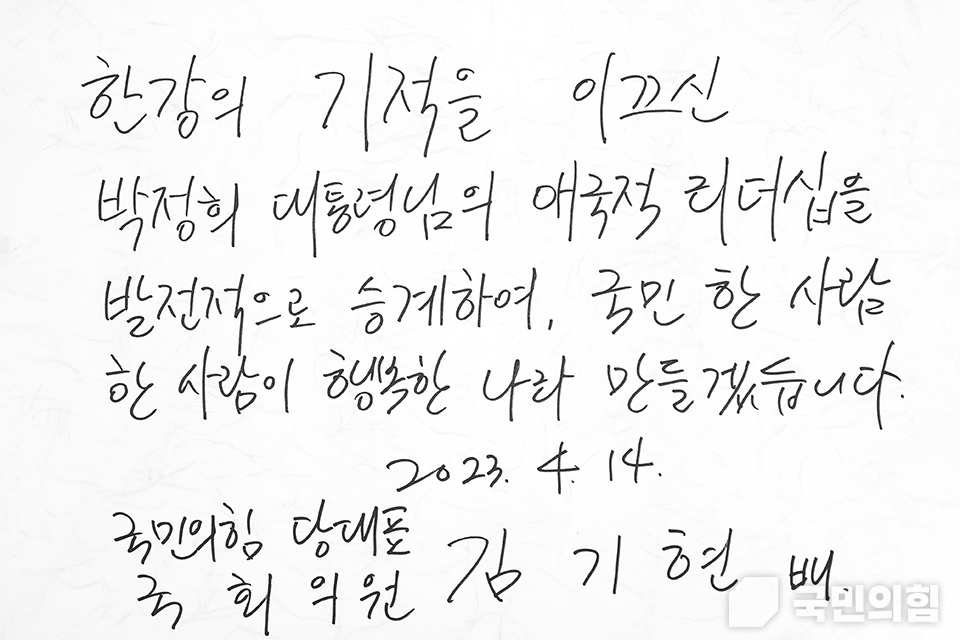 한강의 기적을 이끄신
박정희 대통령님의 애국적 리더십을
발전적으로 승계하여, 국민 한 사람
한 사람이 행복한 나라 만들겠습니다.
2023. 4. 14.
국민의힘 당대표
국회의원 김기현 배.
국민의힘